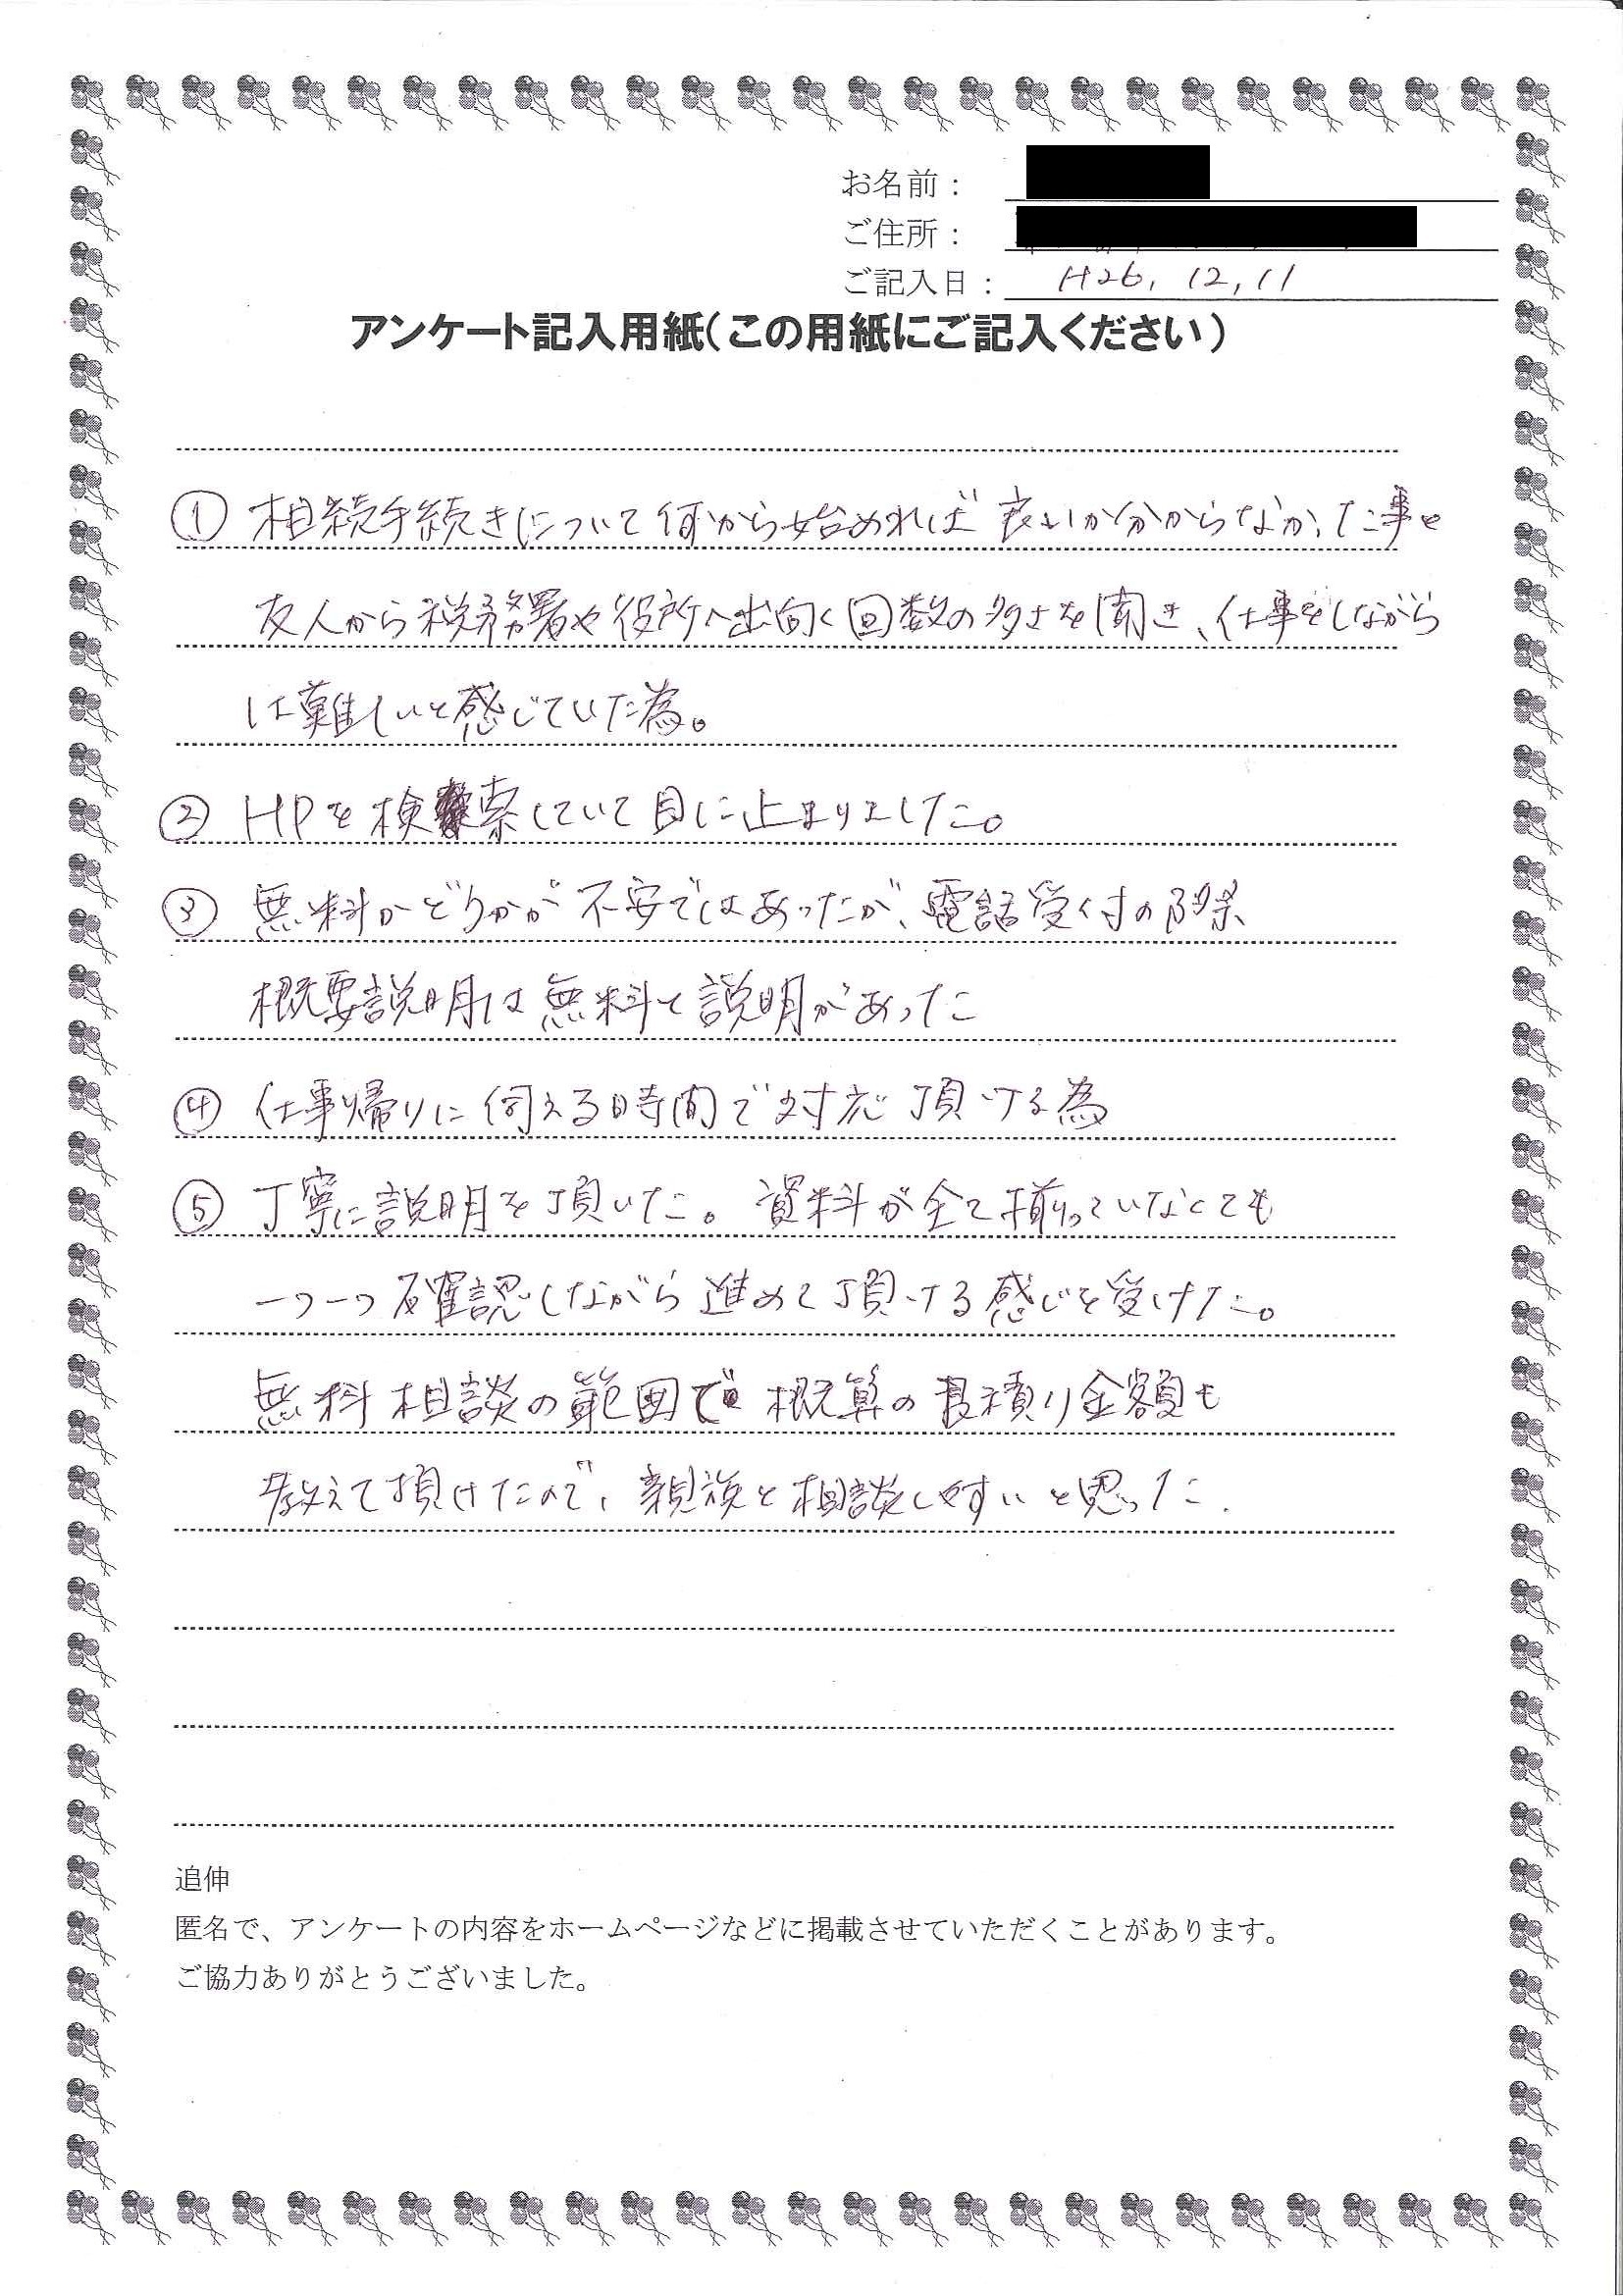 お名前：
ご住所：
ご記入日： H26. 12, 11
アンケート記入用紙(この用紙にご記入ください)
① 相続手続きについて何から始めれば良いか分からなかった事と
友人から税務署や役所へ出向く回数の多さを聞き、仕事をしながら
は難しいと感じていた為。
② HPを検索していて目に止まりました。
③ 無料かどうかが不安ではあったが、電話受付の際
概要説明は無料と説明があった
④ 仕事帰りに伺える時間で対応頂ける為
⑤ 丁寧に説明を頂いた。資料が全て揃っていなくても
一つ一つ確認しながら進めて頂ける感じを受けた。
無料相談の範囲で概算の見積り金額も
教えて頂けたので、親族と相談しやすいと思った.
追伸
匿名で、アンケートの内容をホームページなどに掲載させていただくことがあります。
ご協力ありがとうございました。